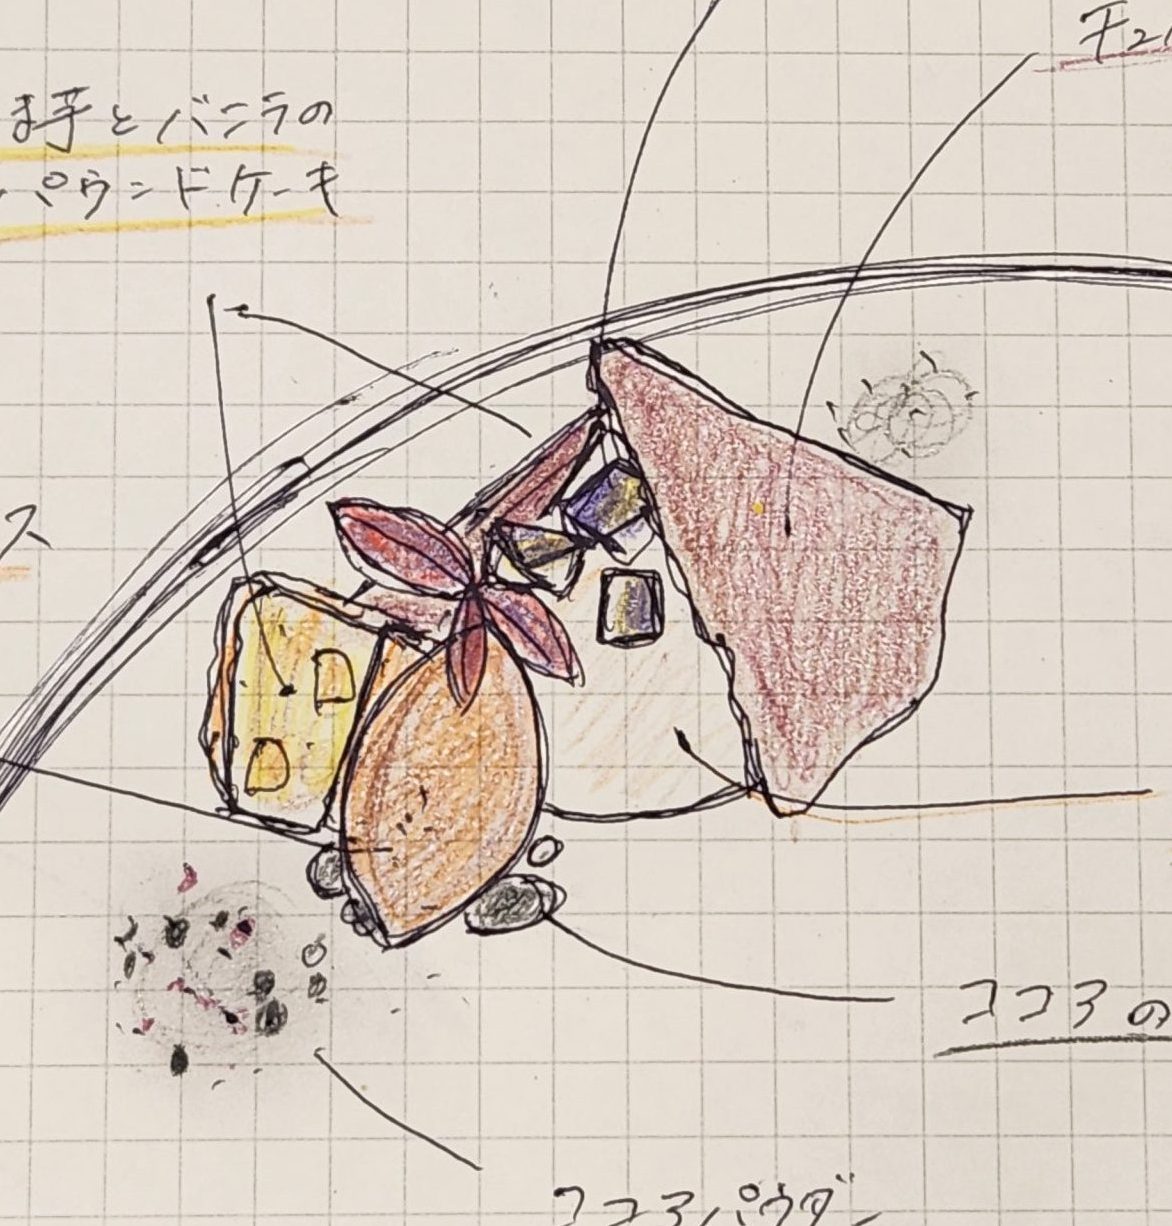 ま芋とバニラの
パウンドケーキ
チュ
ス
ココアの
ココアパウダー